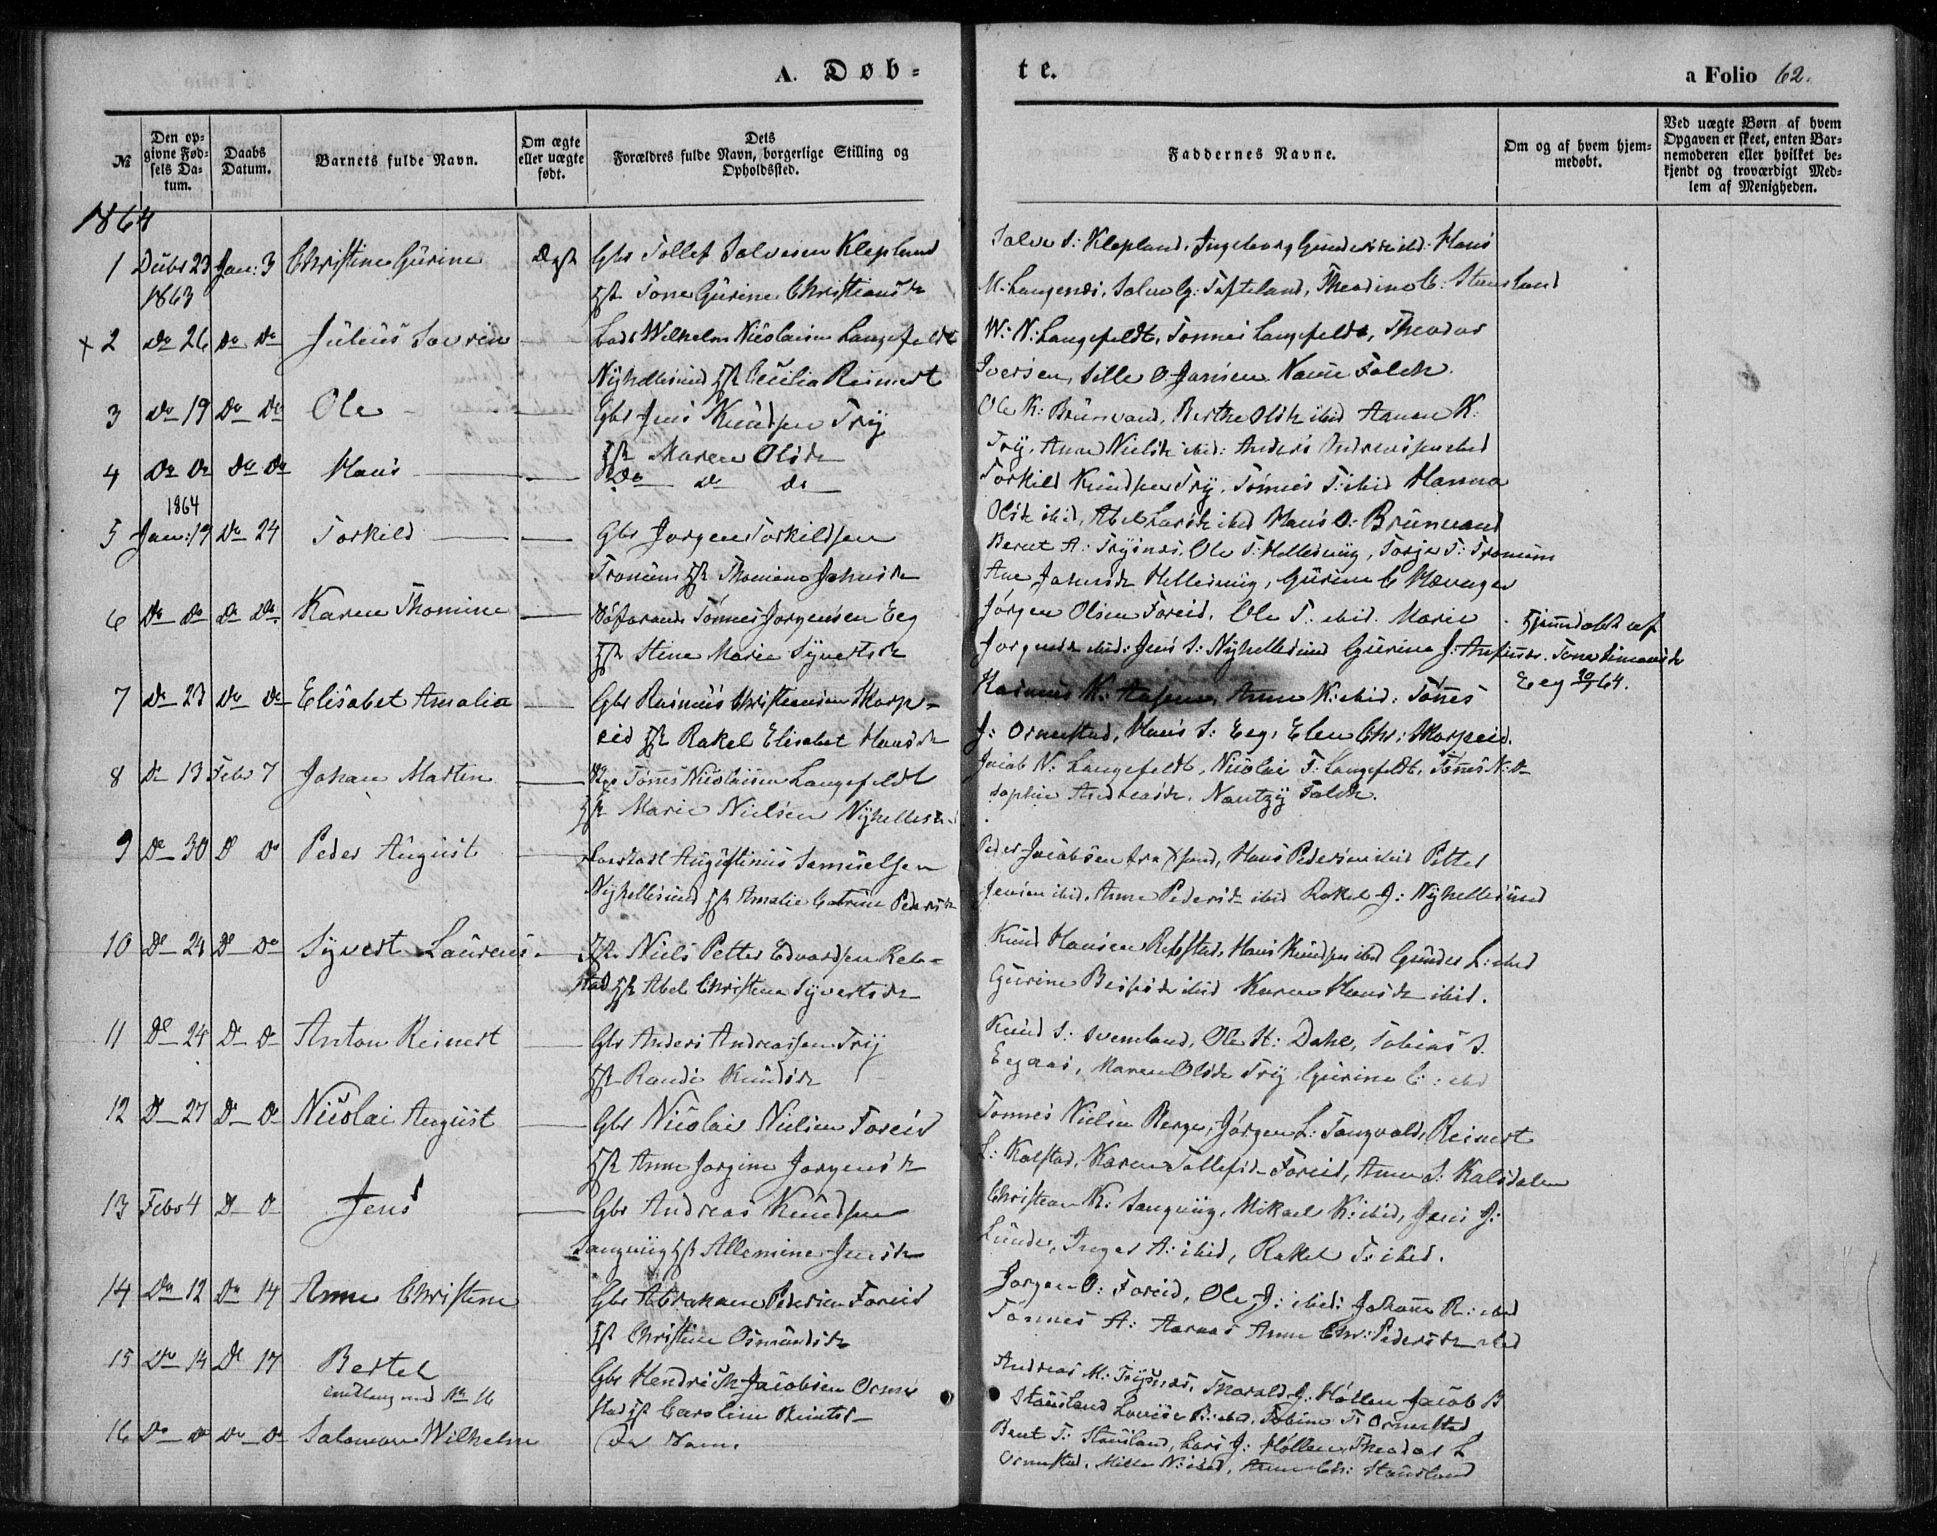 A. Døb=
te.
a Folio 62.
№
Den op=
givne Fød=
sels Da=
tum.
Daabs
Datum.
Barnets fulde Navn.
Om ægte
eller uægte
født.
Dets
Forældres fulde Navn, borgerlige Stilling og
Opholdssted.
Faddernes Navne.
Om og af hvem hjem=
medøbt.
Ved uægte Børn af hvem
Opgaven er skeet, enten Bar=
nemoderen eller hvilket be=
kjendt og troværdigt Med=
lem af Menigheden.
1864
1 Decbr 23 Jan: 3 Christine Gurine Ægte Gbr Tollef Salvesen Klepland
1863 Hst Tone Gurine Christiansd
Salve S: Klepland, Ingeborg ibid: Hans
M: Langenes, Salve G: Tofteland, Theodine C: Stensland
x 2 do 26 do do Julius Severin Lods Wilhelm Nicolaisen Langefeldt
Nyhellesund Hst Cecilia Reinert
W: N: Langefeldt, Tonnes Langefeldt, Theodor
Iversen, Sille O. Jansen Falck
3 do 19 do do Ole Gbr Jens Knudsen Try
Hst Maren Olsd
Ole K: Brunvand, Berthe Olsd ibid Aanen K:
Try, Anne Nielsd ibid: Anders Andreassen ibid
4 do do do do Hans do do do
Torkild Knudsen Try, Tönnes T: ibid Hanna
Olsd ibid, Abel Larsd ibid Hans O: Brunvand
1864
5 Jan: 19 do 24 Torkild Gbr Jorgen Torkildsen
Tronum Hst Thomine Johnsd
Bernt A: Trysnes, Ole T: Hellesvig, Torje T: Tronum
Ane Johnsd Hellesvig, Gurine
6 do do do do Karen Thomine Söfarende Tönnes Jorgensen Eeg
Hst Stine Marie Syvertsd
Jörgen Olsen Foreid, Ole T: ibid. Marie
Jorgensd ibid: Jens S: Nyhellesund Gurine J:
Hjemdøbt af
Tone Simonsd
Eeg 30/1 64.
7 do 23 do do Elisabet Amalia Gbr Rasmus Christiansen Skarp=
eid Hst Rakel Elisabet Hansd
Rasmus K: Aasen, Anne K: ibid: Tönnes
J: Ormestad, Hans S: Eeg, Elen Chr: Skarpeid.
8 do 13 Febr 7 Johan Martin Tönnes Nicolaisen Langefeldt
Hst Marie Nielsen Nyhellesund
Jacob N: Langefeldt, Nicolai T: Langefeldt, Tönnes N: do
Sophie Andreasd. Nantzy Falck.
9 do 30 do do Peder August Augustinus Samuelsen
Nyhellesund Hst Amalie Catrine Pedersd
Peder Jacobsen fra Xsand, Hans Pedersen ibid Petter
Jensen ibid. Anne Pedersd ibid Rakel J: Nyhellesund
10 do 24 do do Syvert Laurens Niels Petter Edvardsen Rep=
stad Hst Abel Christine Syvertsd
Knud Hansen Repstad, Hans Knudsen ibid Gunder L: ibid
Gurine ibid Karen Hansd ibid.
11 do 24 do do Anton Reinert Gbr Anders Andreassen Try
Hst Randi Knudsd
Knud S: Svennland, Ole H: Dahl, Tobias S.
Eegaas, Maren Olsd Try Gurine C: ibid
12 do 27 do do Nicolai August Gbr Nicolai Nielsen Foreid
Hst Anne Jorgine Jorgensd
Tonnes Nielsen Berge, Jörgen L: Tangvald, Reinert
L: Kolstad, Karen Tollefsd Foreid, Anne S: Kalsdalen
13 Febr 4 do do Jens Gbr Andreas Knudsen
Langevig Hst Allemine Jensd
Christian K: Langevig, Mikael K: ibid, Jens J:
Lunde, Inger A: ibid, Rakel T: ibid.
14 do 12 do 14 Anne Christine Gbr Abraham Pedersen Foreid
Hst Christine Osmundsd
Jorgen O: Foreid, Ole J: ibid: Johanne R: ibid
Tönnes A: Aarnes Anne Chr: Pedersd ibid
15 do 14 do 17 Bertel Gbr Hendrich Jacobsen Orme
tvilling med No 16 stad Hst Caroline
Andreas M: Trysnes, Tharald J: Høllen Jacob B
Stausland Lovise B: ibid, Tobine T: Ormestad
16 do do do do Salomon Wilhelm De samme
Bent T: Stausland, Lars J: Høllen, Theodor L
Ormestad, Mille N: ibid, Anne Chr: Stausland